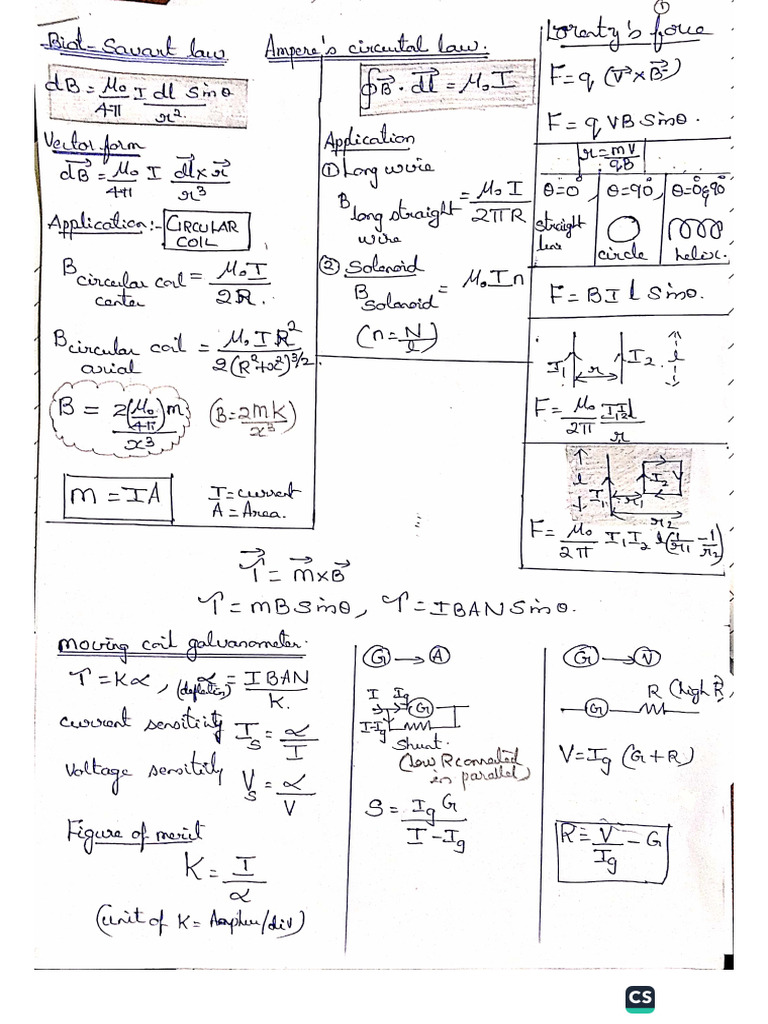 ①
Biot-Savart law
dB = μ₀/4π I dl Sinθ/r².
Vector form
d⃗B = μ₀/4π I d⃗l × r⃗/r³
Application:- CIRCULAR COIL
B circular coil center = μ₀I/2R.
B circular coil axial = μ₀IR²/2(R²+x²)^3/2
B = 2(μ₀/4π)m/x³ (B = 2mK/x³)
m = IA
I = current
A = Area.
Ampere's circuital law.
∮B⃗ · d⃗l = μ₀I
Application
① Long wire
B long straight wire = μ₀I/2πR
② Solenoid
B Solenoid = μ₀In
(n = N/l)
Lorentz's force
F = q (V⃗ × B⃗)
F = q VB Sinθ.
r = mV/qB
θ=0°, θ=90°, θ=0°&90°
straight line
circle
helix.
F = BIl Sinθ.
I₁ r I₂ l
F = μ₀/2π I₁I₂l/r
l I₁ r₁ I₂ r₂
F = μ₀/2π I₁I₂ l(1/r₁ - 1/r₂)
τ⃗ = m⃗ × B⃗
τ = mB Sinθ, τ = IBAN Sinθ.
moving coil galvanometer.
τ = Kα, (deflection) α = IBAN/K.
current sensitivity Is = α/I
Voltage sensitivity Vs = α/V
Figure of merit
K = I/α
(unit of K = Amphere/div)
G → A
I Ig G
I-Ig
Shunt.
(low R connected
in parallel)
S = Ig G/I - Ig
G → V
R (high R)
G
V = Ig (G+R)
R = V/Ig - G
CS